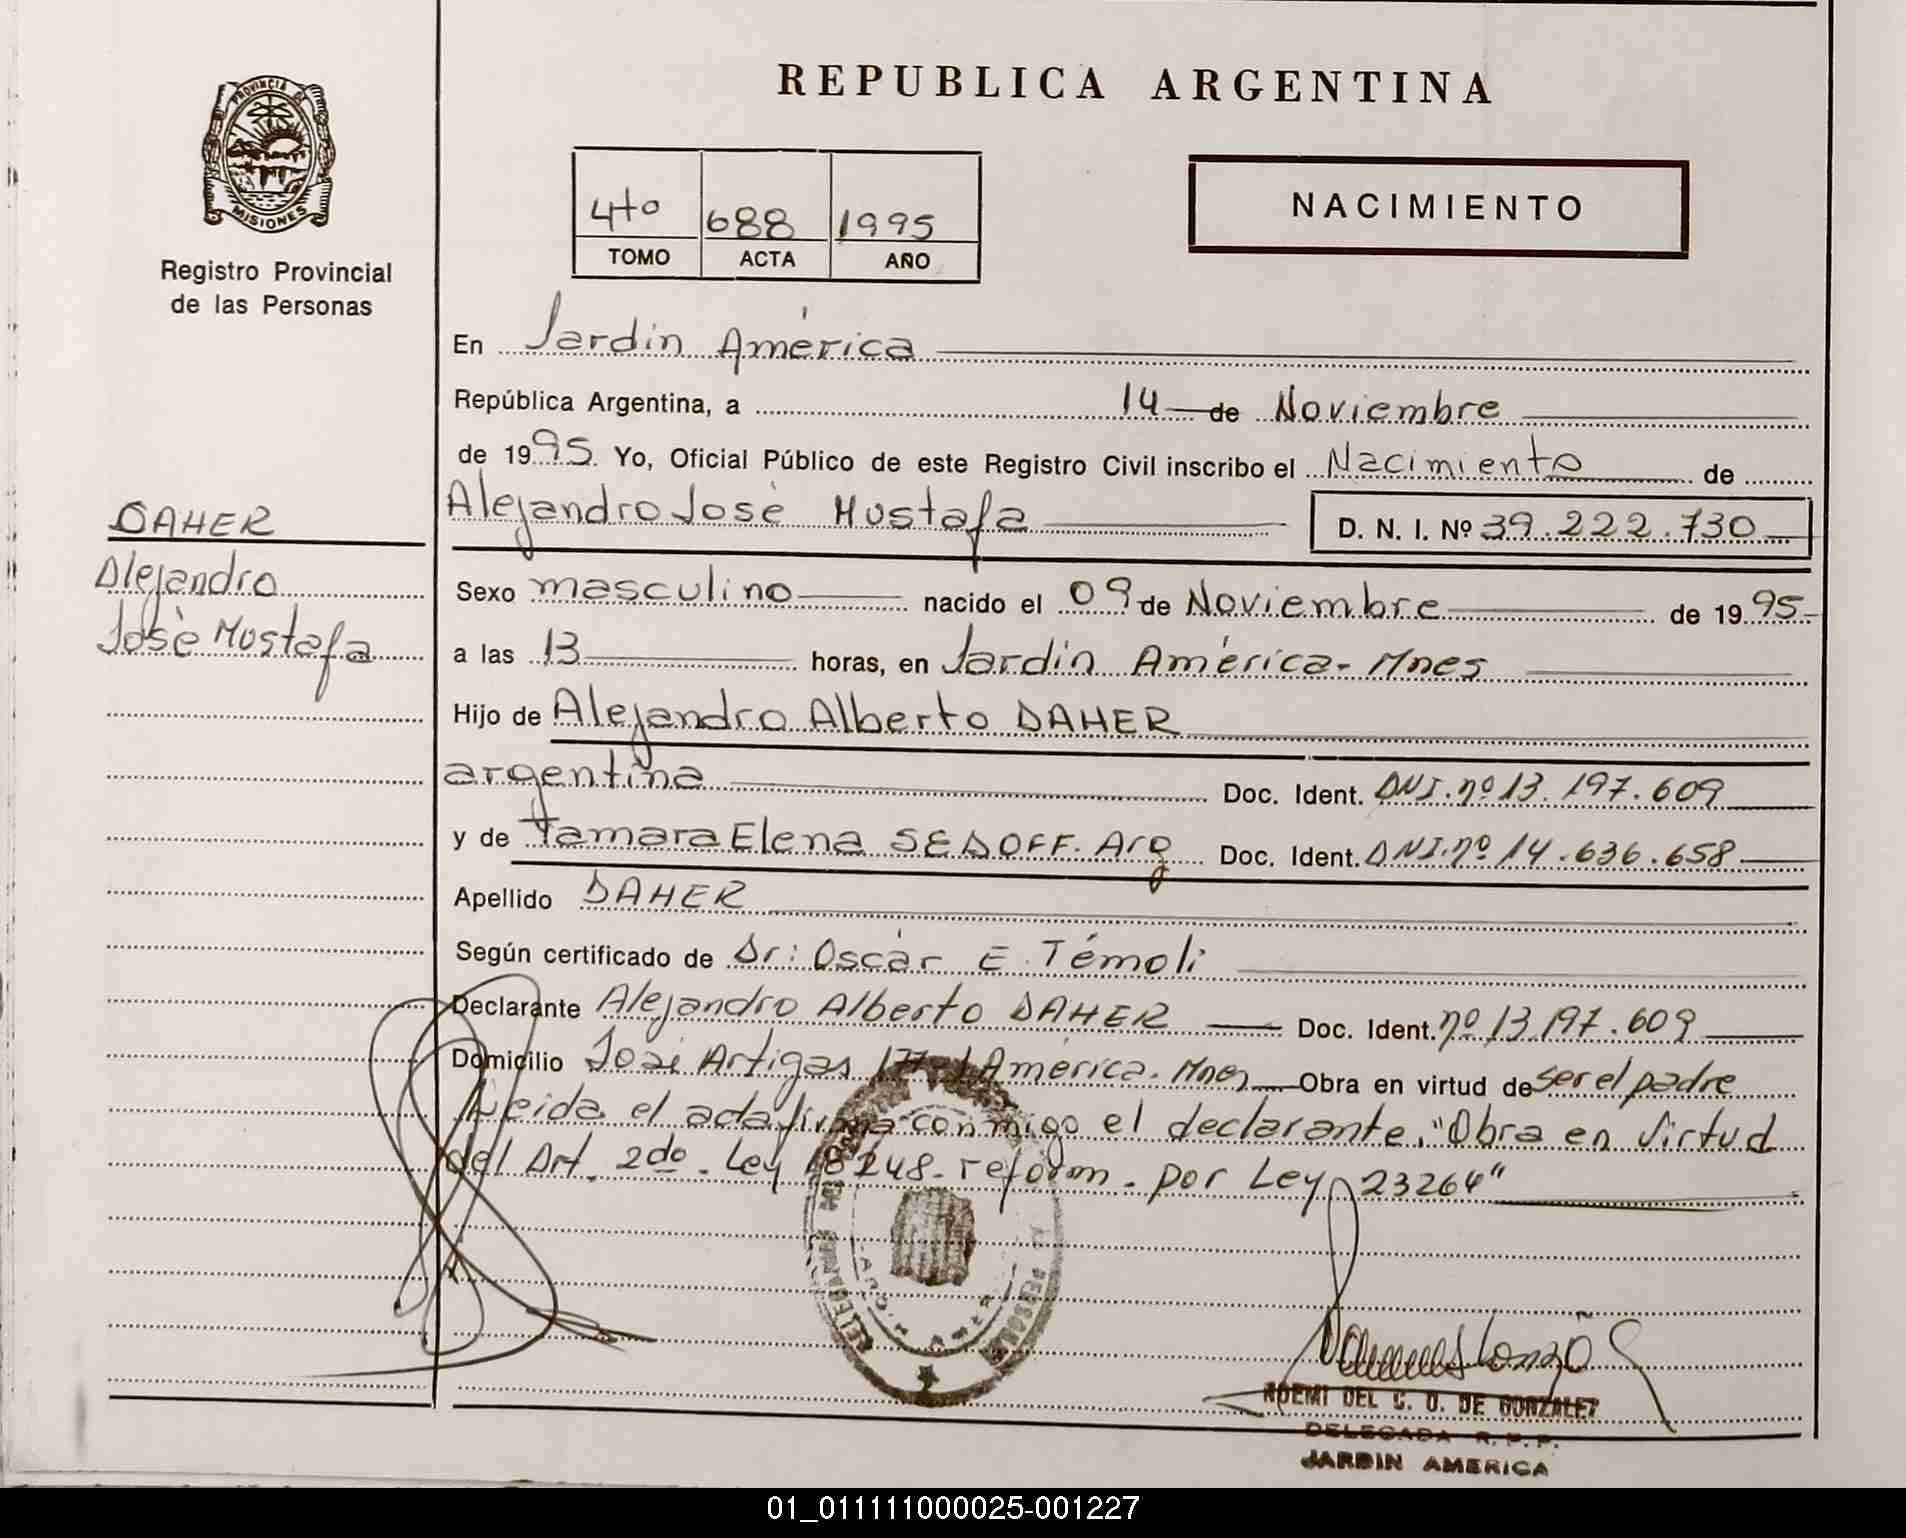 REPUBLICA ARGENTINA
PROVINCIA DE
MISIONES
Registro Provincial
de las Personas
4to 688 1995
TOMO ACTA AÑO
NACIMIENTO
En Jardín América
República Argentina, a 14 de Noviembre
de 1995. Yo, Oficial Público de este Registro Civil inscribo el Nacimiento de
Alejandro José Mustafa D. N. I. Nº 39.222.730
DAHER
Alejandro
José Mustafa
Sexo masculino nacido el 09 de Noviembre de 1995
a las 13 horas, en Jardín América- Mnes
Hijo de Alejandro Alberto DAHER
argentina Doc. Ident. DNI. nº 13.197.609
y de Tamara Elena SEDOFF. Arg Doc. Ident. DNI. nº 14.636.658
Apellido DAHER
Según certificado de Dr: Oscar E. Témoli
Declarante Alejandro Alberto DAHER Doc. Ident. nº 13.197.609
Domicilio José Artigas América. Mnes Obra en virtud de ser el padre
Leída el acta firma conmigo el declarante. "Obra en virtud
del Art. 2do. Ley 18248. reform. por Ley 23264"
NOEMI DEL C. O. DE GONZALEZ
DELEGADA R. P. P.
JARDIN AMERICA
01_011111000025-001227